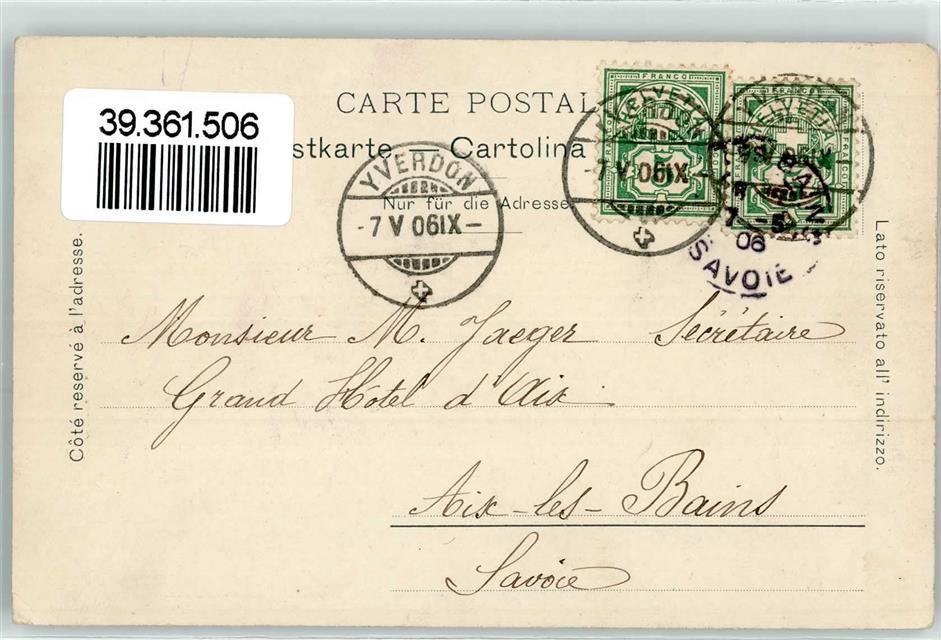 39.361.506
CARTE POSTAL
stkarte — Cartolina
Nur für die Adresse
Côté reservé à l'adresse.
Lato riservato all' indirizzo.
FRANCO
HELVETIA
5
V 06IX
FRANCO
HELVETIA
YVERDON
-7 V 06IX-
7 -5
06
SAVOIE
Monsieur M. Jaeger Secrétaire
Grand Hôtel d'Aix
Aix-les-Bains
Savoie